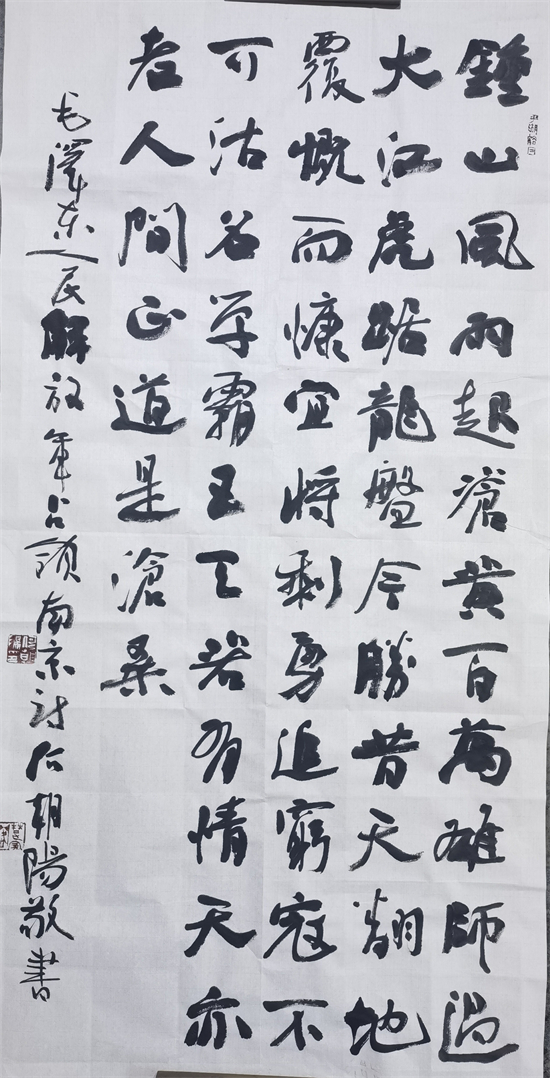 鍾山風雨起滄黃百萬雄師過
大江虎踞龍盤今勝昔天翻地
覆慨而慷宜將剩勇追窮寇不
可沽名学霸王天若有情天亦
老人間正道是滄桑
毛澤東人民解放軍占領南京詩石朝陽敬書